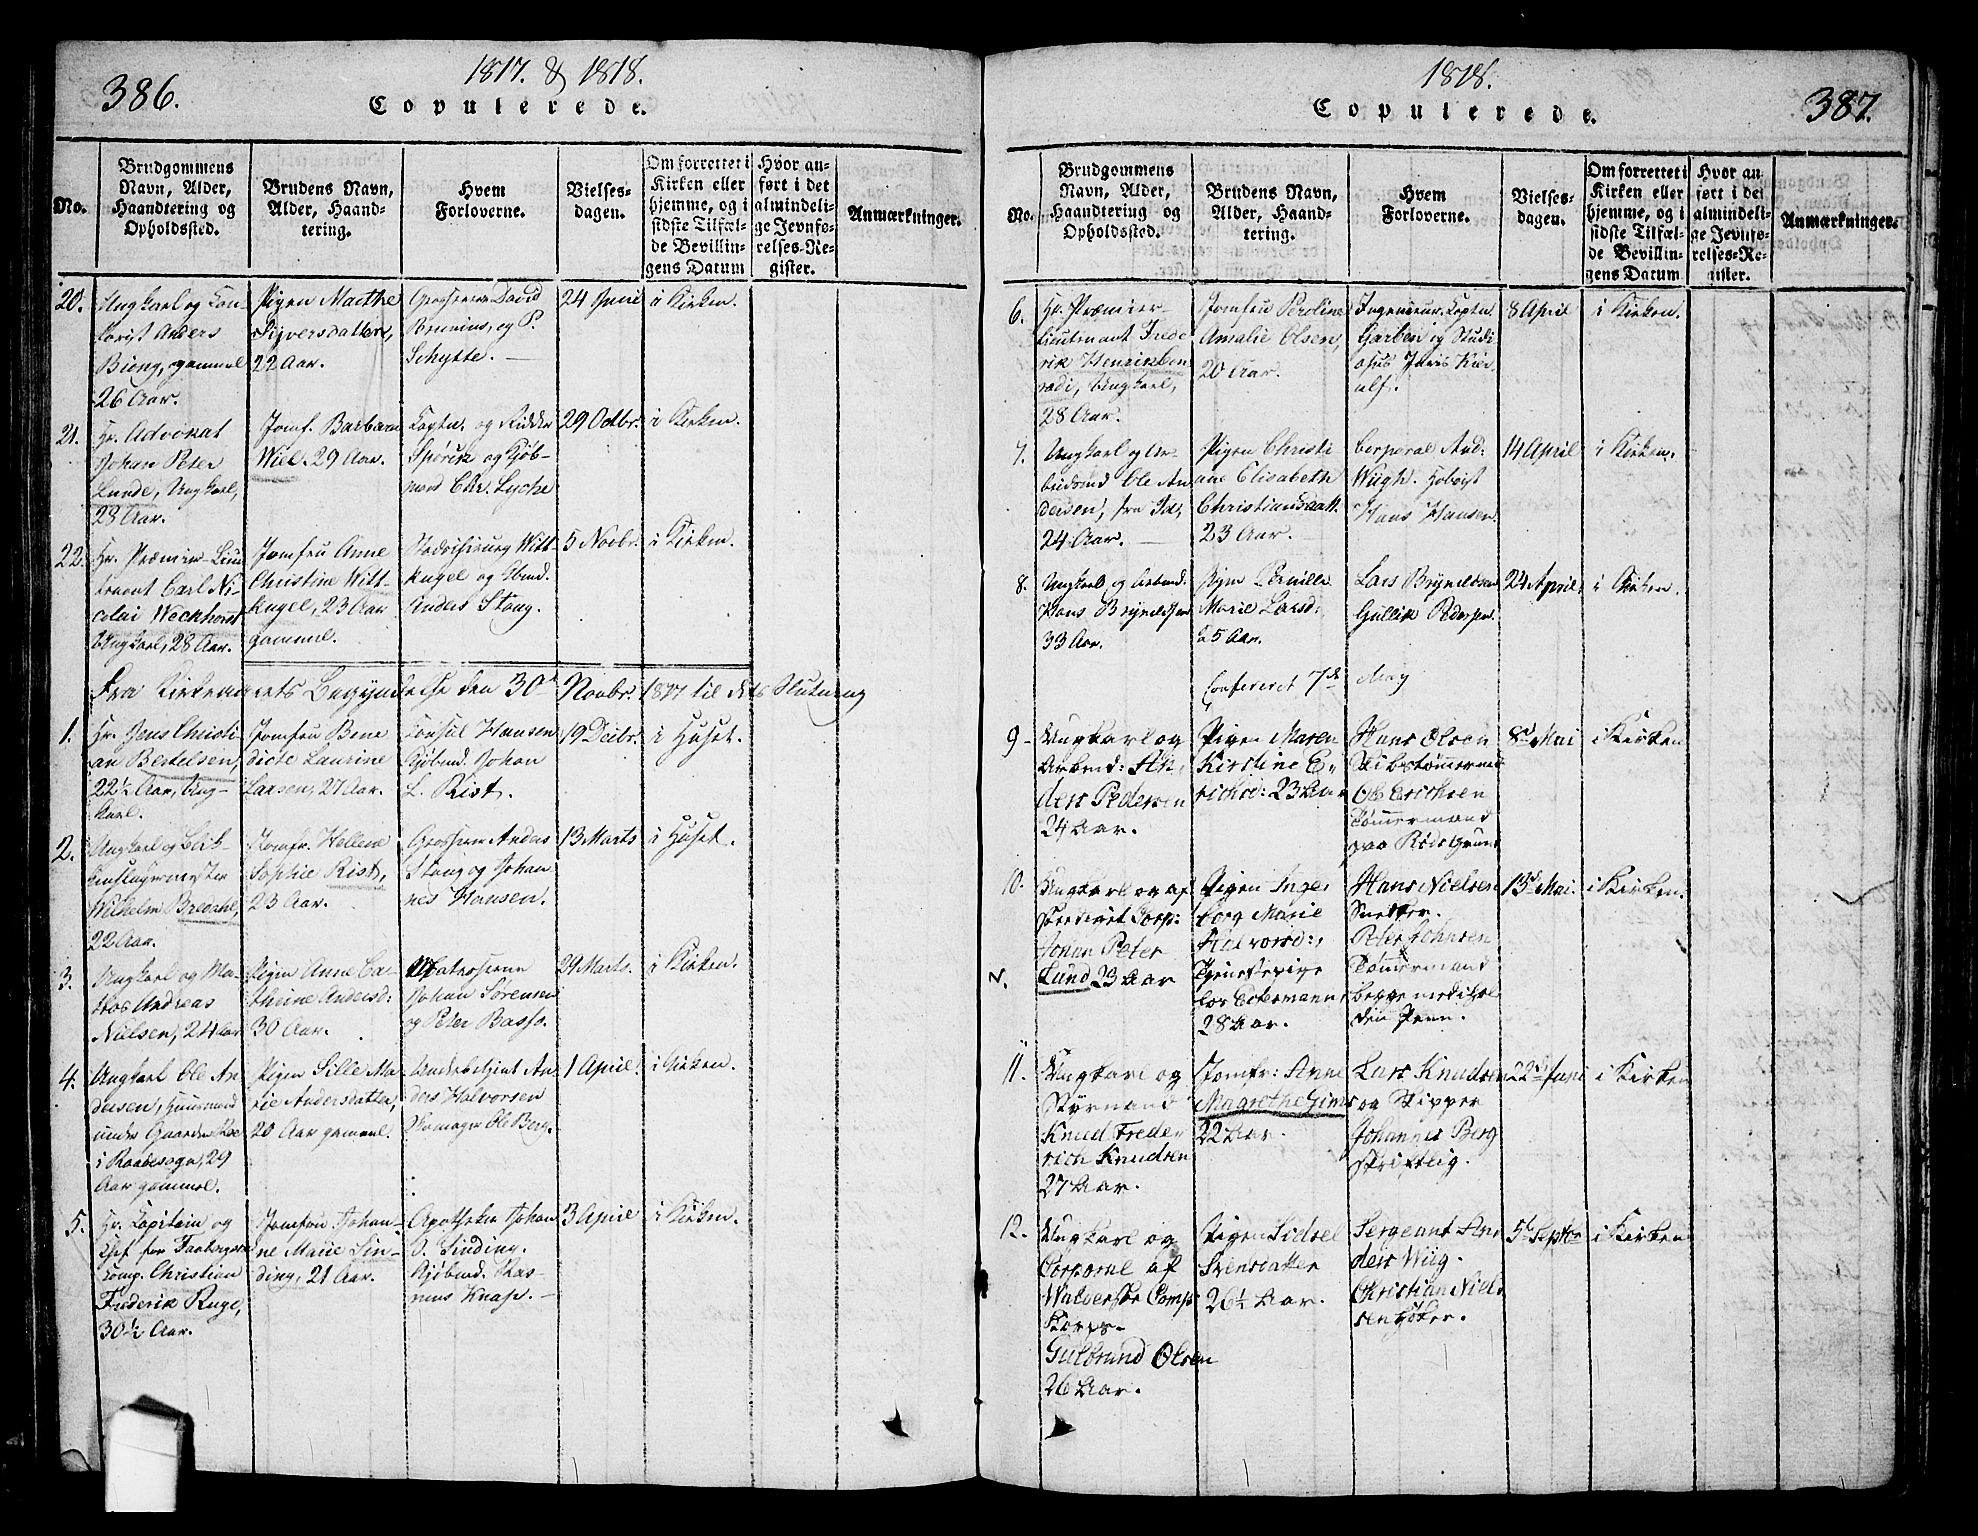 386.
1817. & 1818.
Copulerede.
No.
Brudgommens
Navn, Alder,
Haandtering og
Opholdssted.
Brudens Navn,
Alder, Haand-
tering.
Hvem
Forloverne.
Vielses-
dagen.
Om forrettet i
Kirken eller
hjemme, og i
sidste Tilfæl-
de Bevillin-
gens Datum
Hvor an-
ført i det
almindeli-
ge Jevnfø-
relses-Re-
gister.
Anmærkninger.
20.
Ungkarl og Con-
torist Anders
Biong, gammel
26 Aar.
Pigen Marthe
Sijversdatter,
22 Aar.
Grosserer David
P.
Schytte. —
24 Juni
i Kirken.
21.
Hr. Advokat
Johan Peter
Lunde, Ungkarl,
28 Aar.
Jomf. Barbara
Wiel. 29 Aar.
Captn. og Ridder
Spørck og Kjøb-
mand Chr. Lyche
29 Octbr.
i Kirken.
22.
Hr. Præmier-Lieu-
tenant Carl Ni-
colai Weckhorst
Ungkarl, 28 Aar.
Jomfru Anne
Christine Witt-
kugel, 23 Aar
gammel.
Witt-
kugel og Kbmd.
Anders Stang.
5 Novbr.
i Kirken.
Fra Kirkeaarets Begyndelse den 30d Novbr. 1817 til dets Slutning
1.
Hr. Jens Christi-
an Bertelsen,
22½ Aar, Ung-
karl.
Jomfru Bene
dicte Laurine
Larsen, 27 Aar.
Consul Hansen
Kjøbmd. Johan
L. Rist.
19 Decbr.
i Huset.
2.
Ungkarl og Blik-
kenslagermester
Wilhelm Bredahl,
22 Aar.
Jomfr. Hellene
Sophie Rist,
23 Aar.
Grosserer Anders
Stang og Johan
nes Hansen.
13 Marts
i Huset.
3.
Ungkarl og Ma-
tros Andreas
Nielsen, 24 Aar
Pigen Anne Ca-
thrine Andersd:
30 Aar.
Matroserne
Johan Sørensen
og Peter Basse.
29 Marts.
i Kirken.
4.
Ungkarl Ole An
dersen, Huusmand
under Gaarden
i Raadesogn, 29
Aar gammel.
Pigen Sille Ma-
rie Andersdatter,
20 Aar gammel.
Underbetjent An
ders Halvorsen
Skomager Ole Berg.
1 April.
i Kirken.
5.
Hr. Capitain og
Chef for
Comp. Christian
Frederik Ruge,
30½ Aar.
Jomfru Johan-
ne Marie Sin-
ding, 21 Aar.
Apotheker Johan
Sinding.
Kjøbmd. Ras-
mus Knap. —
3 April
i Kirken.
1818.
387.
Copulerede.
No.
Brudgommens
Navn, Alder,
Haandtering og
Opholdssted.
Brudens Navn,
Alder, Haand-
tering.
Hvem
Forloverne.
Vielses-
dagen.
Om forrettet i
Kirken eller
hjemme, og i
sidste Tilfæl-
de Bevillin-
gens Datum.
Hvor an-
ført i det
almindeli-
ge Jevnfø-
relses-Re-
gister.
Anmærkninger.
6.
Hr. Præmier-
Lieutenant Frede
rik Henrik
Ungkarl,
28 Aar.
Jomfru
Amalie Olsen,
20 Aar.
Ingenieur-Captn.
Garben og Studi
osus
8 April
i Kirken.
7.
Ungkarl og Ar-
beidsmd Ole An
dersen, fra Id,
24 Aar. —
Pigen Christi
ane Elisabeth
Christiansdatt.
23 Aar. —
Corporal And:
Wiigh. Hoboist
Hans Hansen.
14 April
i Kirken.
8.
Ungkarl og Arbmd.
Hans Brynildsen
33 Aar.
Pigen Pernille
Marie Larsd:
25 Aar.
Lars Brynildsen
Gullik Pedersen.
24 April.
i Kirken.
Confereret 7de May
9 -
Ungkarl og
Arbmd: An,
ders Pedersen
24 Aar.
Pigen Maren
Kirstine E,,
richsd: 23 Aar
Hans Olsen
Skibstømmermd
Ole Erichsen
Tømmermand
paa Rødsgrund
8d Mai
i Kirken
10.
N.
Ungkarl og af
skediget Corp:
Johan Peter
Lund 23 Aar
Pigen Inge
borg Marie
Halvorsd:,
Tjenestepige
hos Eckermann
28 Aar.
Hans Nielsen
Snedker.
Peter Johnsen
Tømmermand
begge med ihol
den Penn.
13d Mai.
i Kirken.
11.
Ungkarl og
Styrmand
Knud Frede
rich Knudsen
27 Aar.
Jomfr: Anne
Magrethe Gims
22 Aar.
Lars Knudsen
og Skipper
Johannes Berg
skriftlig.
22d Juni
i Kirken
12.
Ungkarl og
Corporal af
Comp:
Korps-
Gulbrand Olsen
26 Aar.
Pigen Sidsel
Svensdatter
26½ Aar.
Sergeant An
ders Wiig.
Christian Niel
sen Høker.
5te Septbr
i Kirken